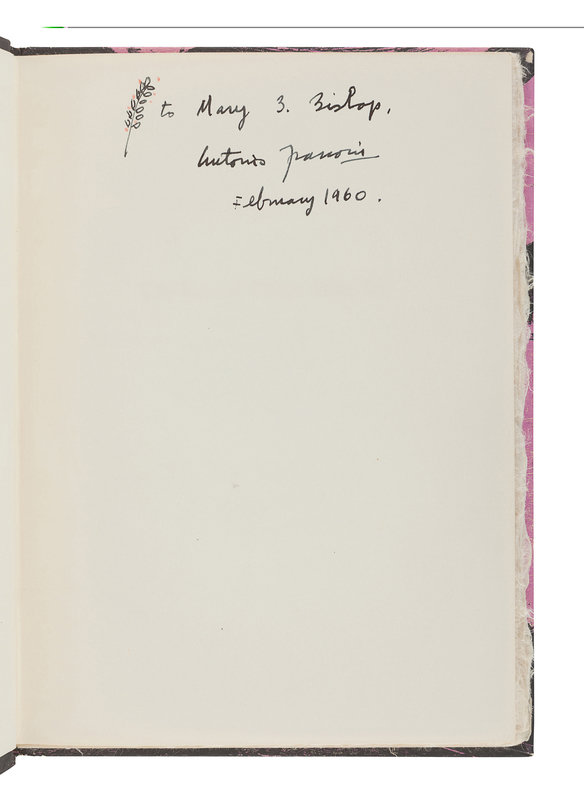 to Mary B. Bishop.
Antonio Frasconi
February 1960.